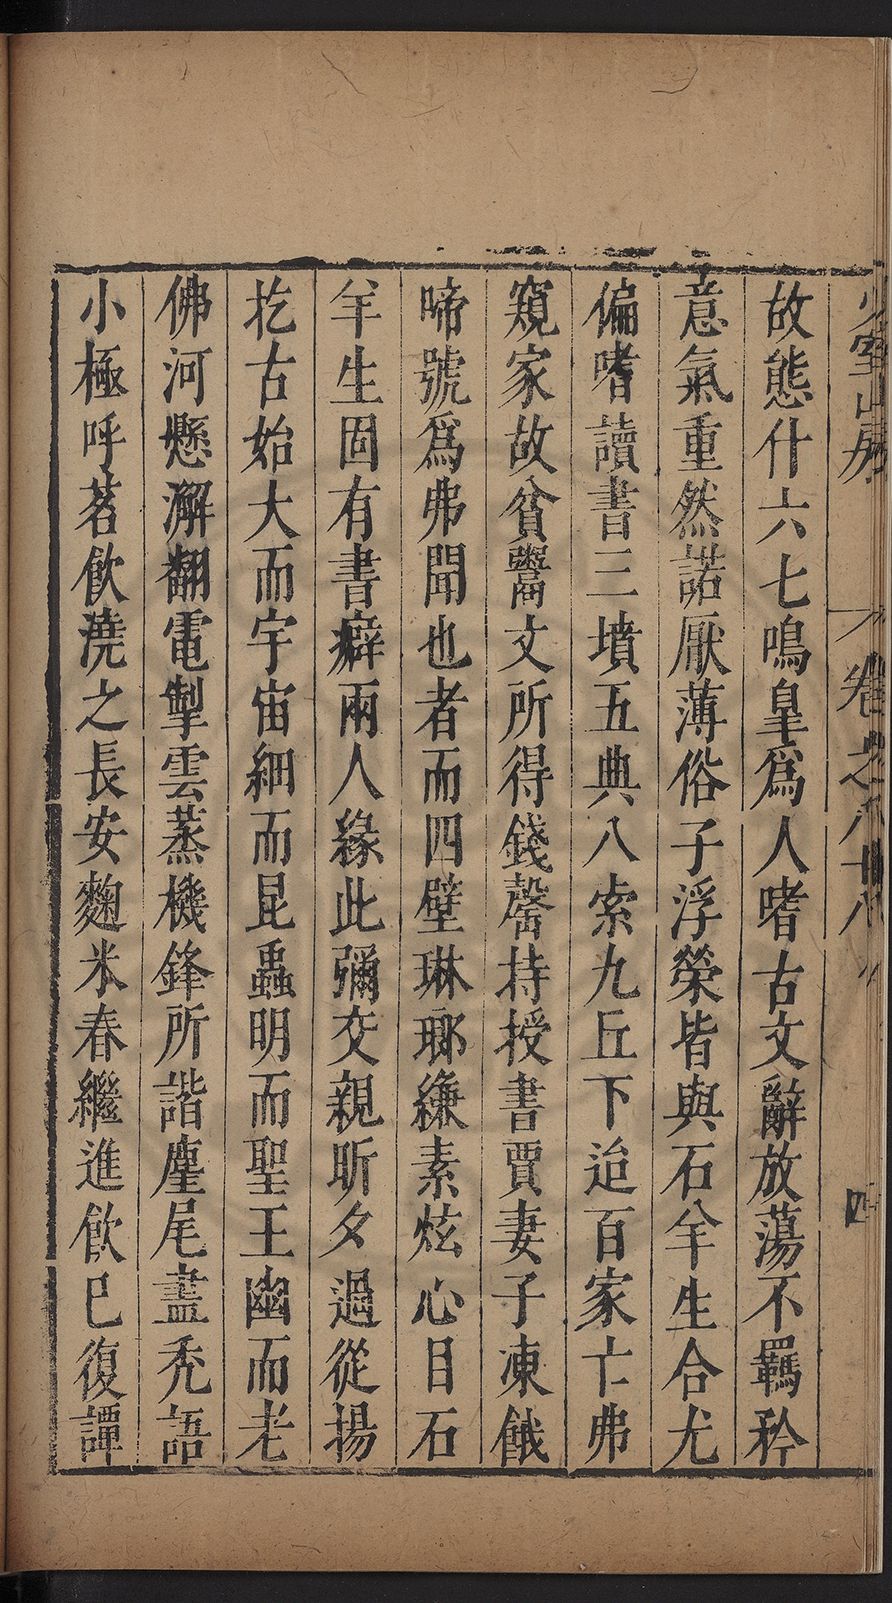 少室山房
卷之八十八
四
故態什六七鳴皇爲人嗜古文辭放蕩不羈矜
意氣重然諾厭薄俗子浮榮皆與石羊生合尤
偏嗜讀書三墳五典八索九丘下迨百家亡弗
窺家故貧鬻文所得錢罄持授書賈妻子凍餓
啼號爲弗聞也者而四壁琳瑯縑素炫心目石
羊生固有書癖兩人緣此彌交親昕夕過從揚
扢古始大而宇宙細而昆蟲明而聖王幽而老
佛河懸澥翻電掣雲蒸機鋒所諧麈尾盡禿語
小極呼茗飲澆之長安麴米春繼進飲巳復譚